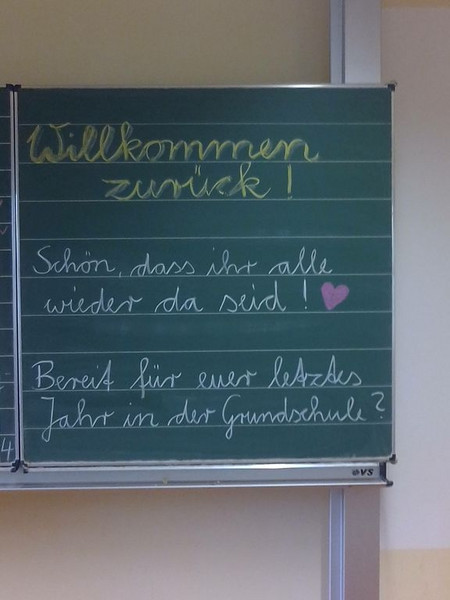 Willkommen
zurück!
Schön, dass ihr alle
wieder da seid!
Bereit für euer letztes
Jahr in der Grundschule?
4
eVS